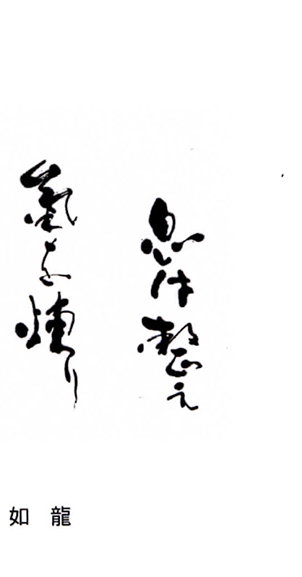 息は整え
氣を煉り
如　龍